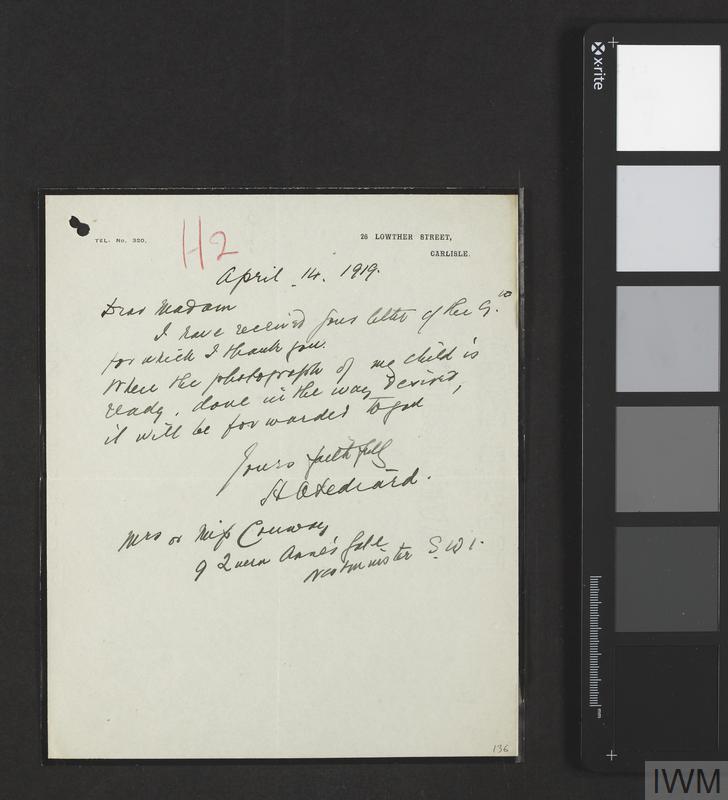 TEL. No. 320.
H2
26 LOWTHER STREET,
CARLISLE.
April 14. 1919.
Dear Madam
I have received your letter of the 9.th
for which I thank you.
When the photograph of my child is
ready, done in the way desired,
it will be forwarded to you
Yours faithfully
Mrs or Miss Conway
9 Queen Anne's Gate
Westminster S.W.1.
136
x-rite
mm
IWM